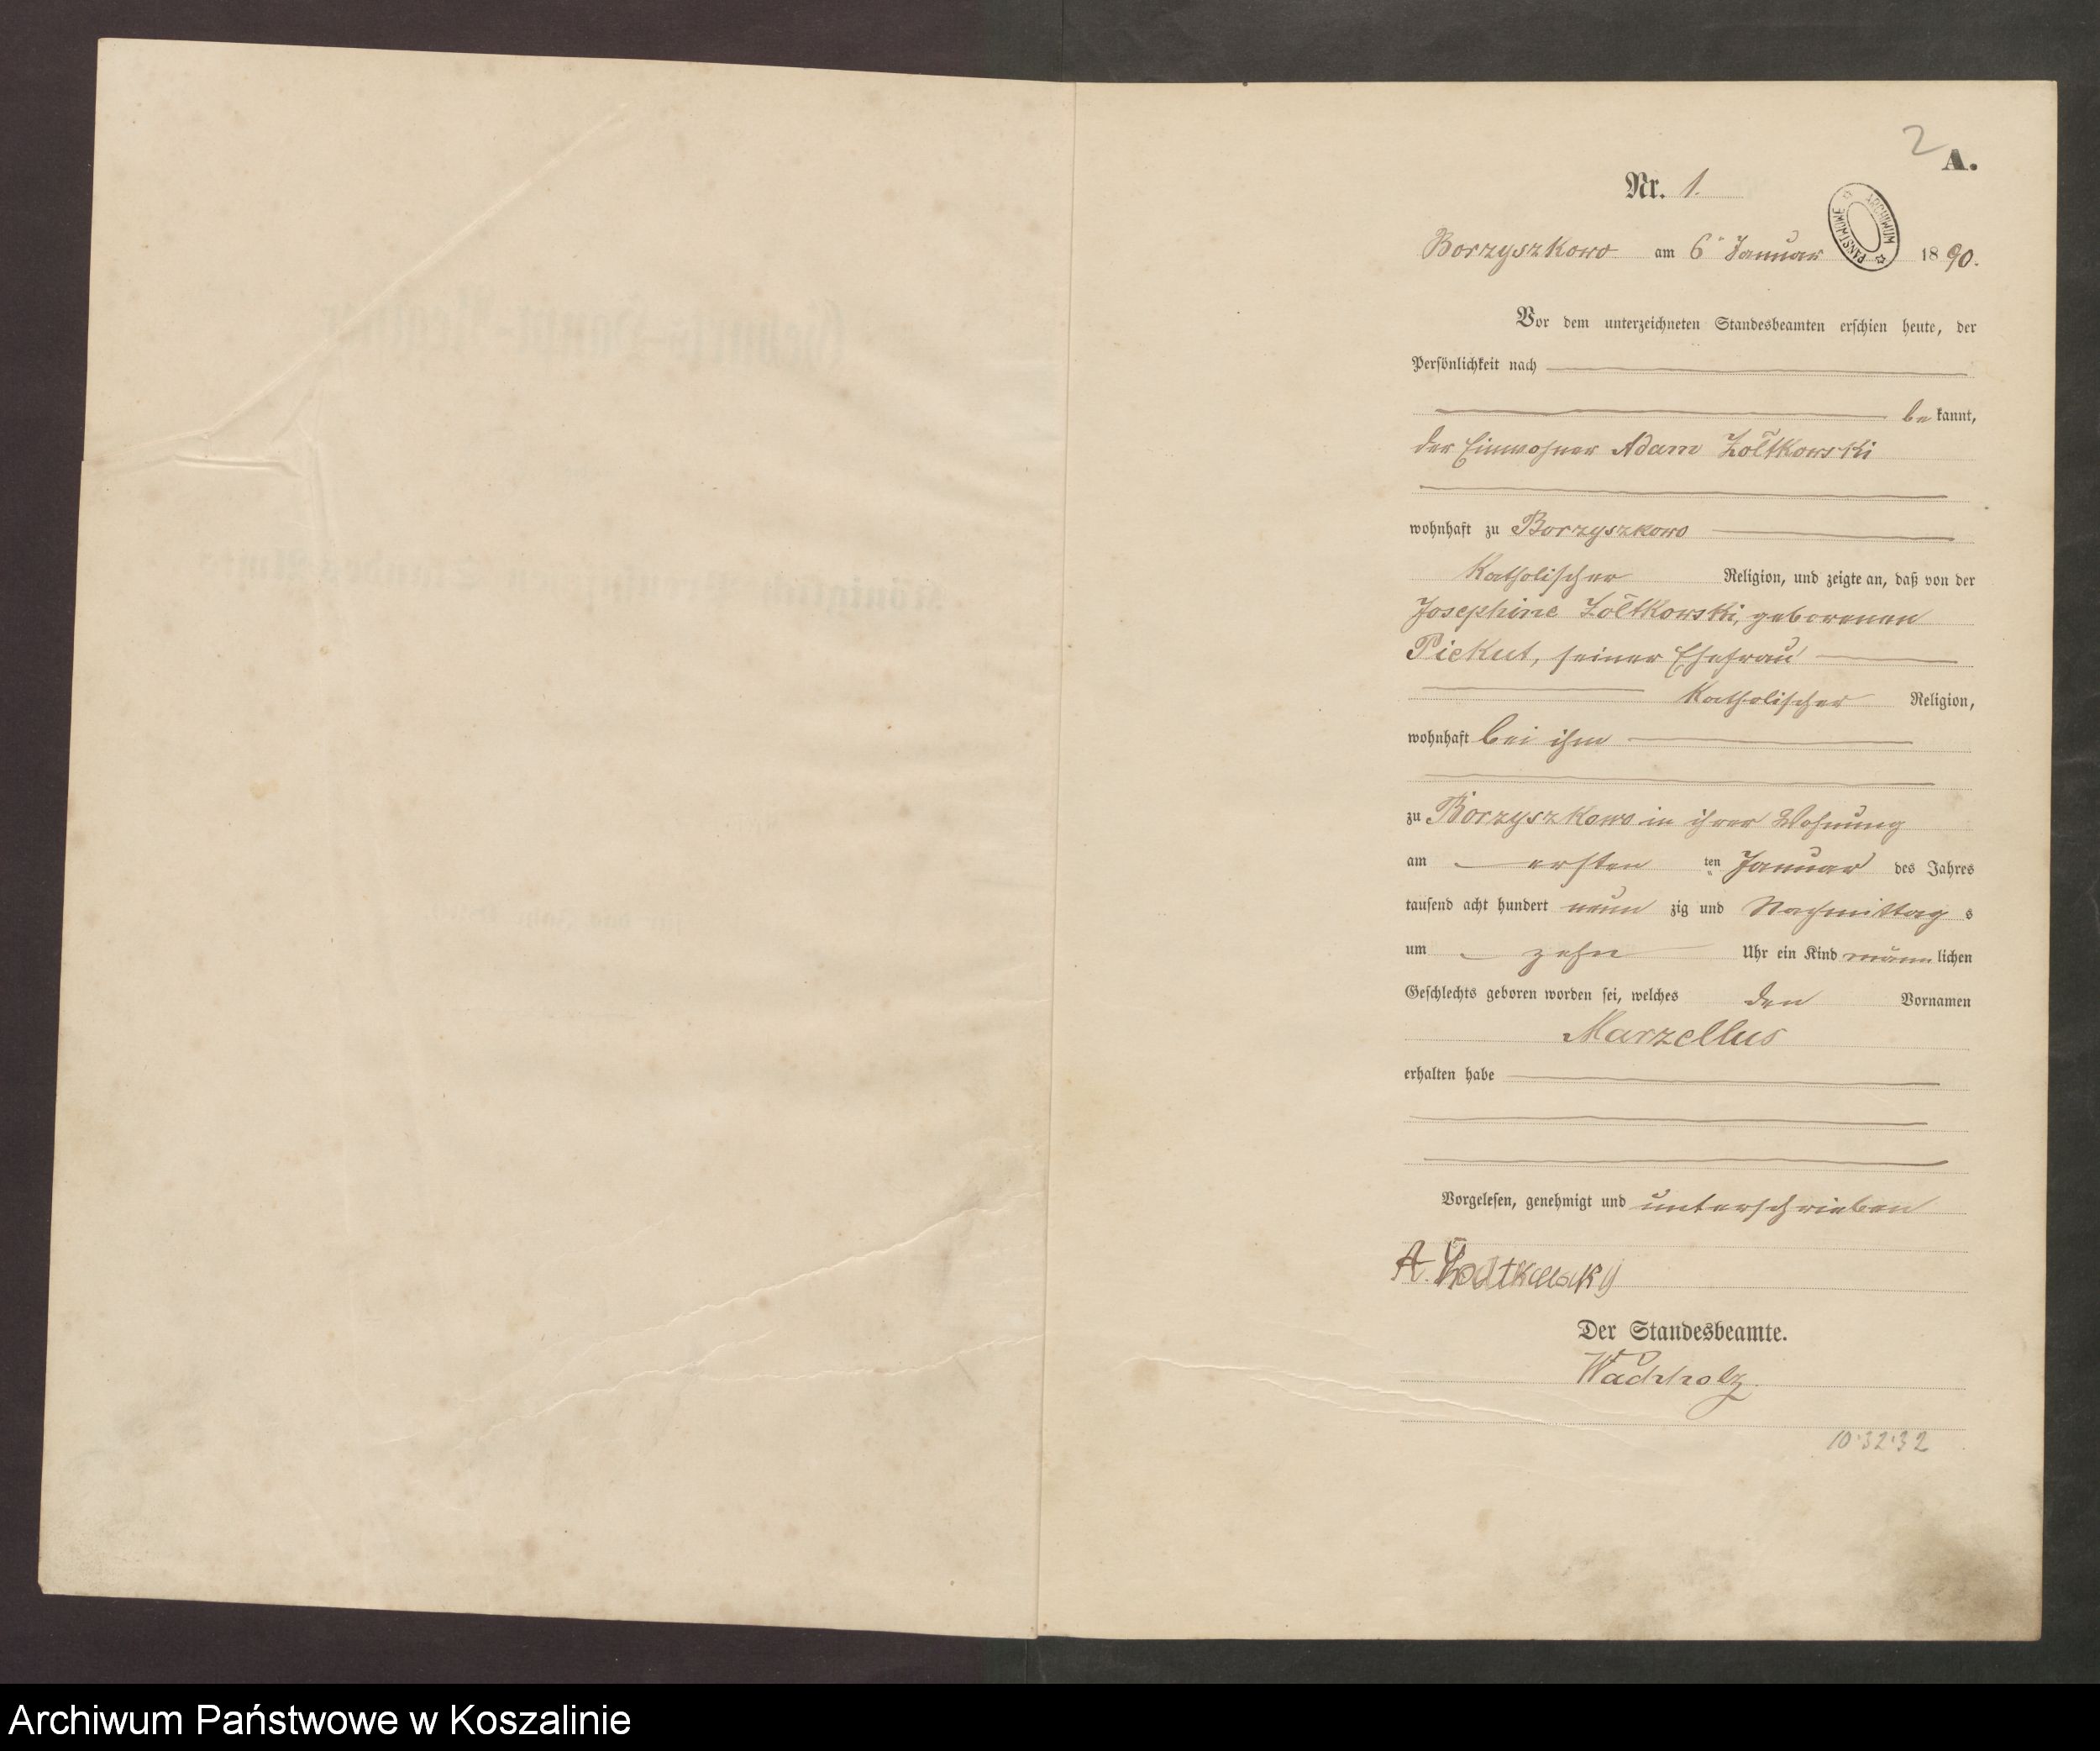 2
A.
Nr. 1.
ARCHIWUM PAŃSTWOWE
Borzyszkowo am 6ᵗ Januar 1890.
Vor dem unterzeichneten Standesbeamten erschien heute, der
Persönlichkeit nach
bekannt,
der Einwohner Adam Żołtkowski
wohnhaft zu Borzyszkowo
Katholischer Religion, und zeigte an, daß von der
Josephine Żołtkowski, geborenen
Piekut, seiner Ehefrau
Katholischer Religion,
wohnhaft bei ihm
zu Borzyszkowo in ihrer Wohnung
am ersten ten Januar des Jahres
tausend acht hundert neunzig und Nachmittags
um zehn Uhr ein Kind männlichen
Geschlechts geboren worden sei, welches den Vornamen
Marzellus
erhalten habe
Vorgelesen, genehmigt und unterschrieben
A.
Der Standesbeamte.
Wachholz.
10.32.32
Archiwum Państwowe w Koszalinie